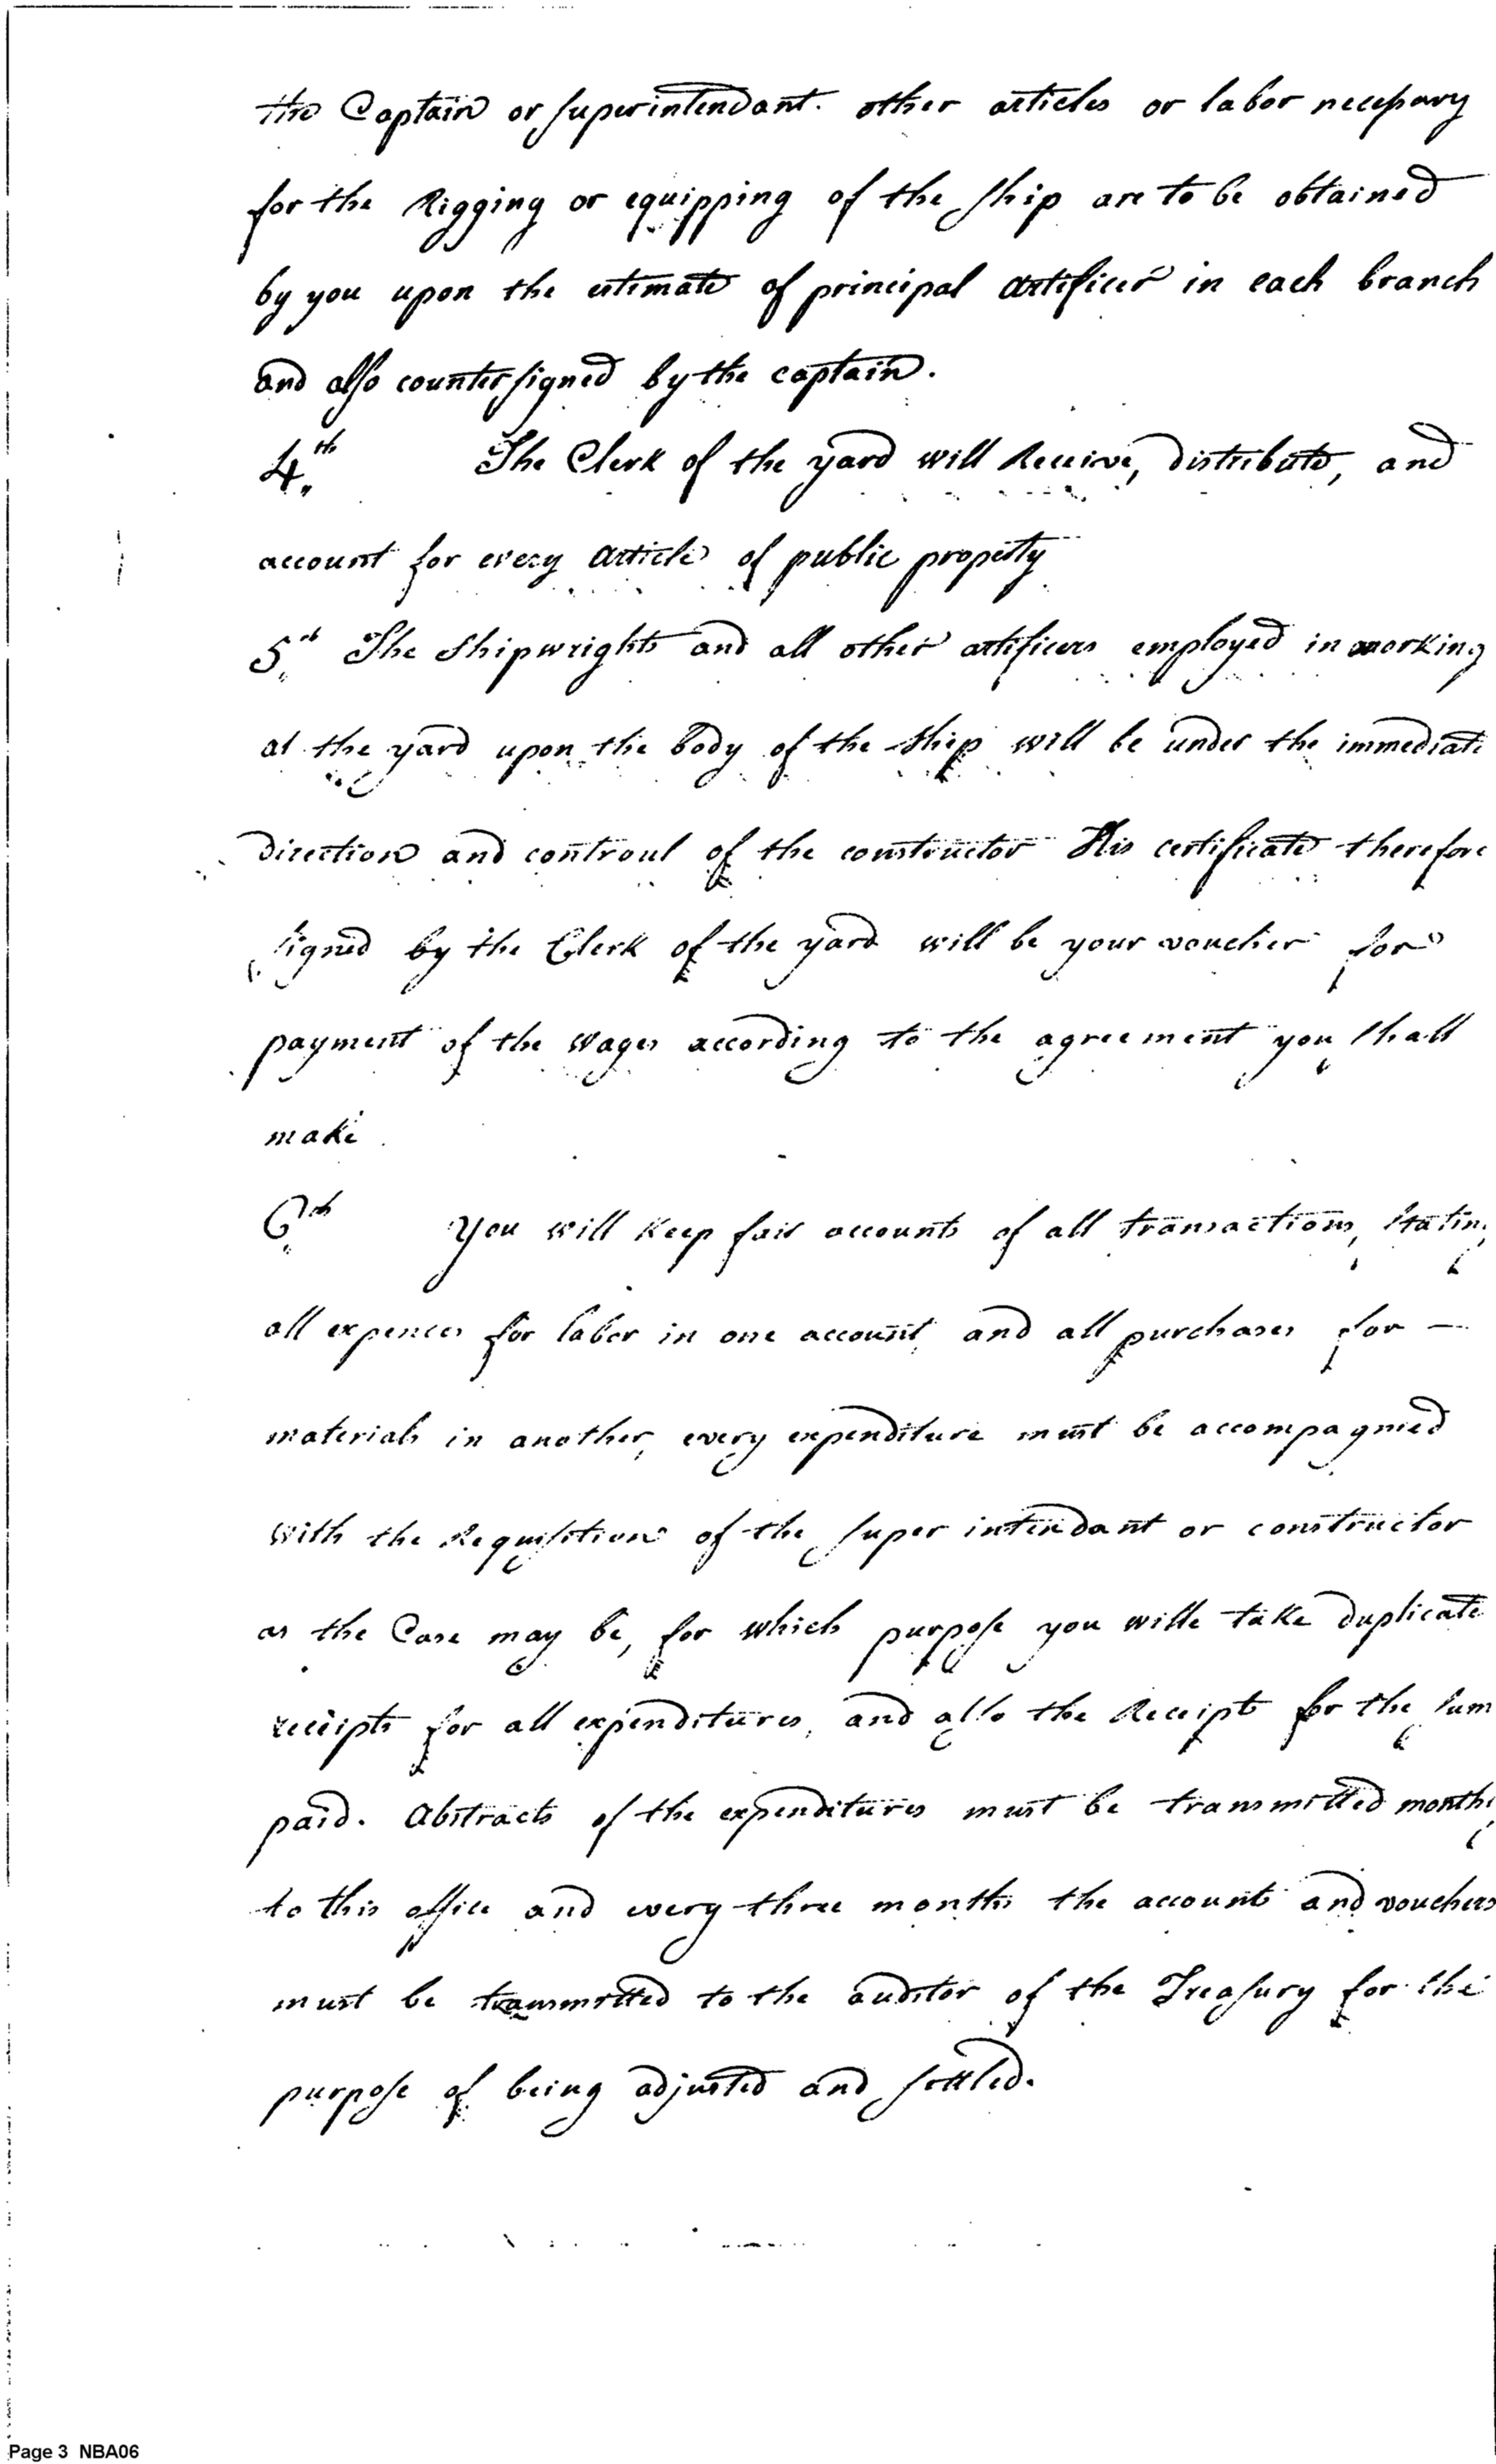 the Captain or superintendant. other articles or labor necessary
for the Rigging or equipping of the ship are to be obtained
by you upon the estimate of principal artificer in each branch
and also countersigned by the captain.
4th The Clerk of the yard will Receive, distribute, and
account for every article of public property
5th The Shipwrights and all other artificers employed in working
at the yard upon the Body of the Ship will be under the immediate
direction and controul of the constructor His certificate therefore
signed by the Clerk of the yard will be your voucher for
payment of the wages according to the agreement you shall
make
6th You will keep fair accounts of all transactions, stating
all expences for labor in one account, and all purchases for —
materials in another, every expenditure must be accompagnied
with the Requisition of the super intendant or constructor
as the Case may be, for which purpose you wille take duplicate
receipts for all expenditures, and also the Receipt for the sum
paid. Abstracts of the expenditures must be transmitted month
to this office and every three months the accounts and vouchers
must be transmitted to the auditor of the Treasury for the
purpose of being adjusted and settled.
Page 3 NBA06